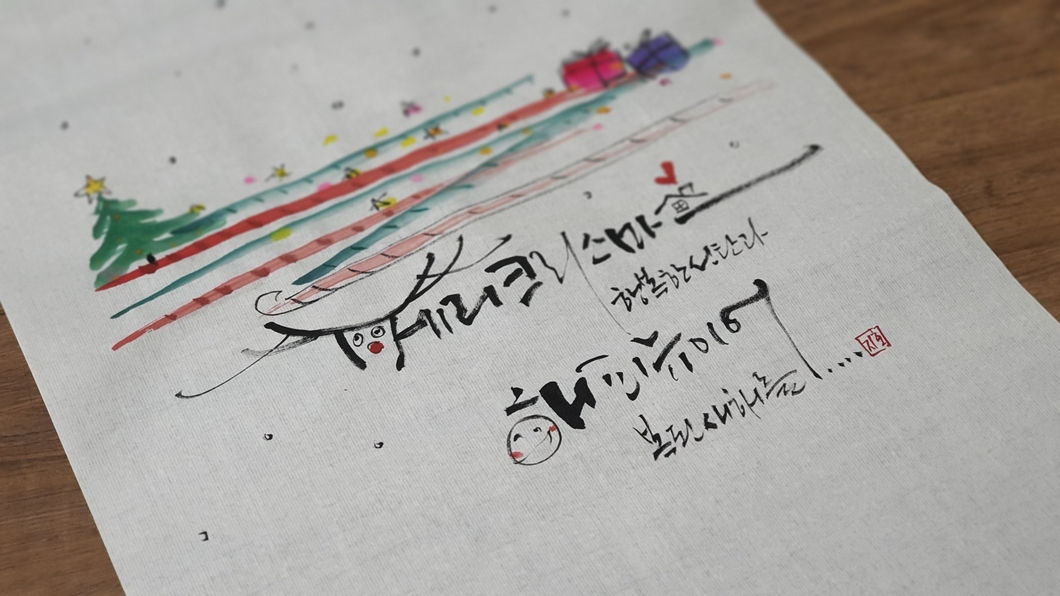 메리크리스마스
행복한성탄과
해피뉴이어
복된새해를....